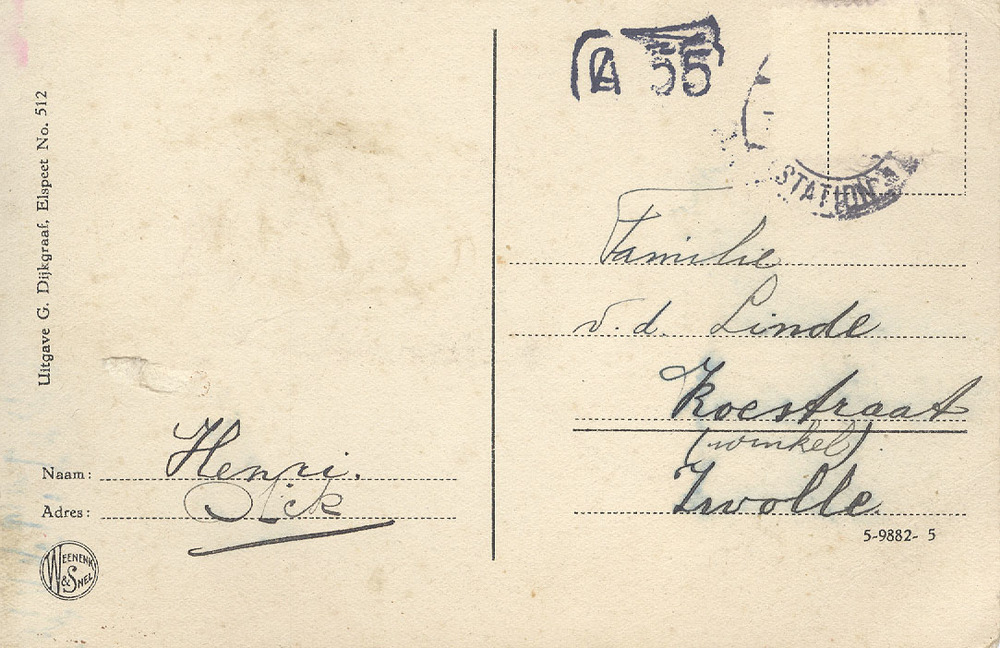 Uitgave G. Dijkgraaf, Elspeet No. 512
Naam: Henri.
Adres:
WEENENK & SNEL
55
STATION
Familie
v. d. Linde
Koestraat
(winkel)
Zwolle
5-9882- 5